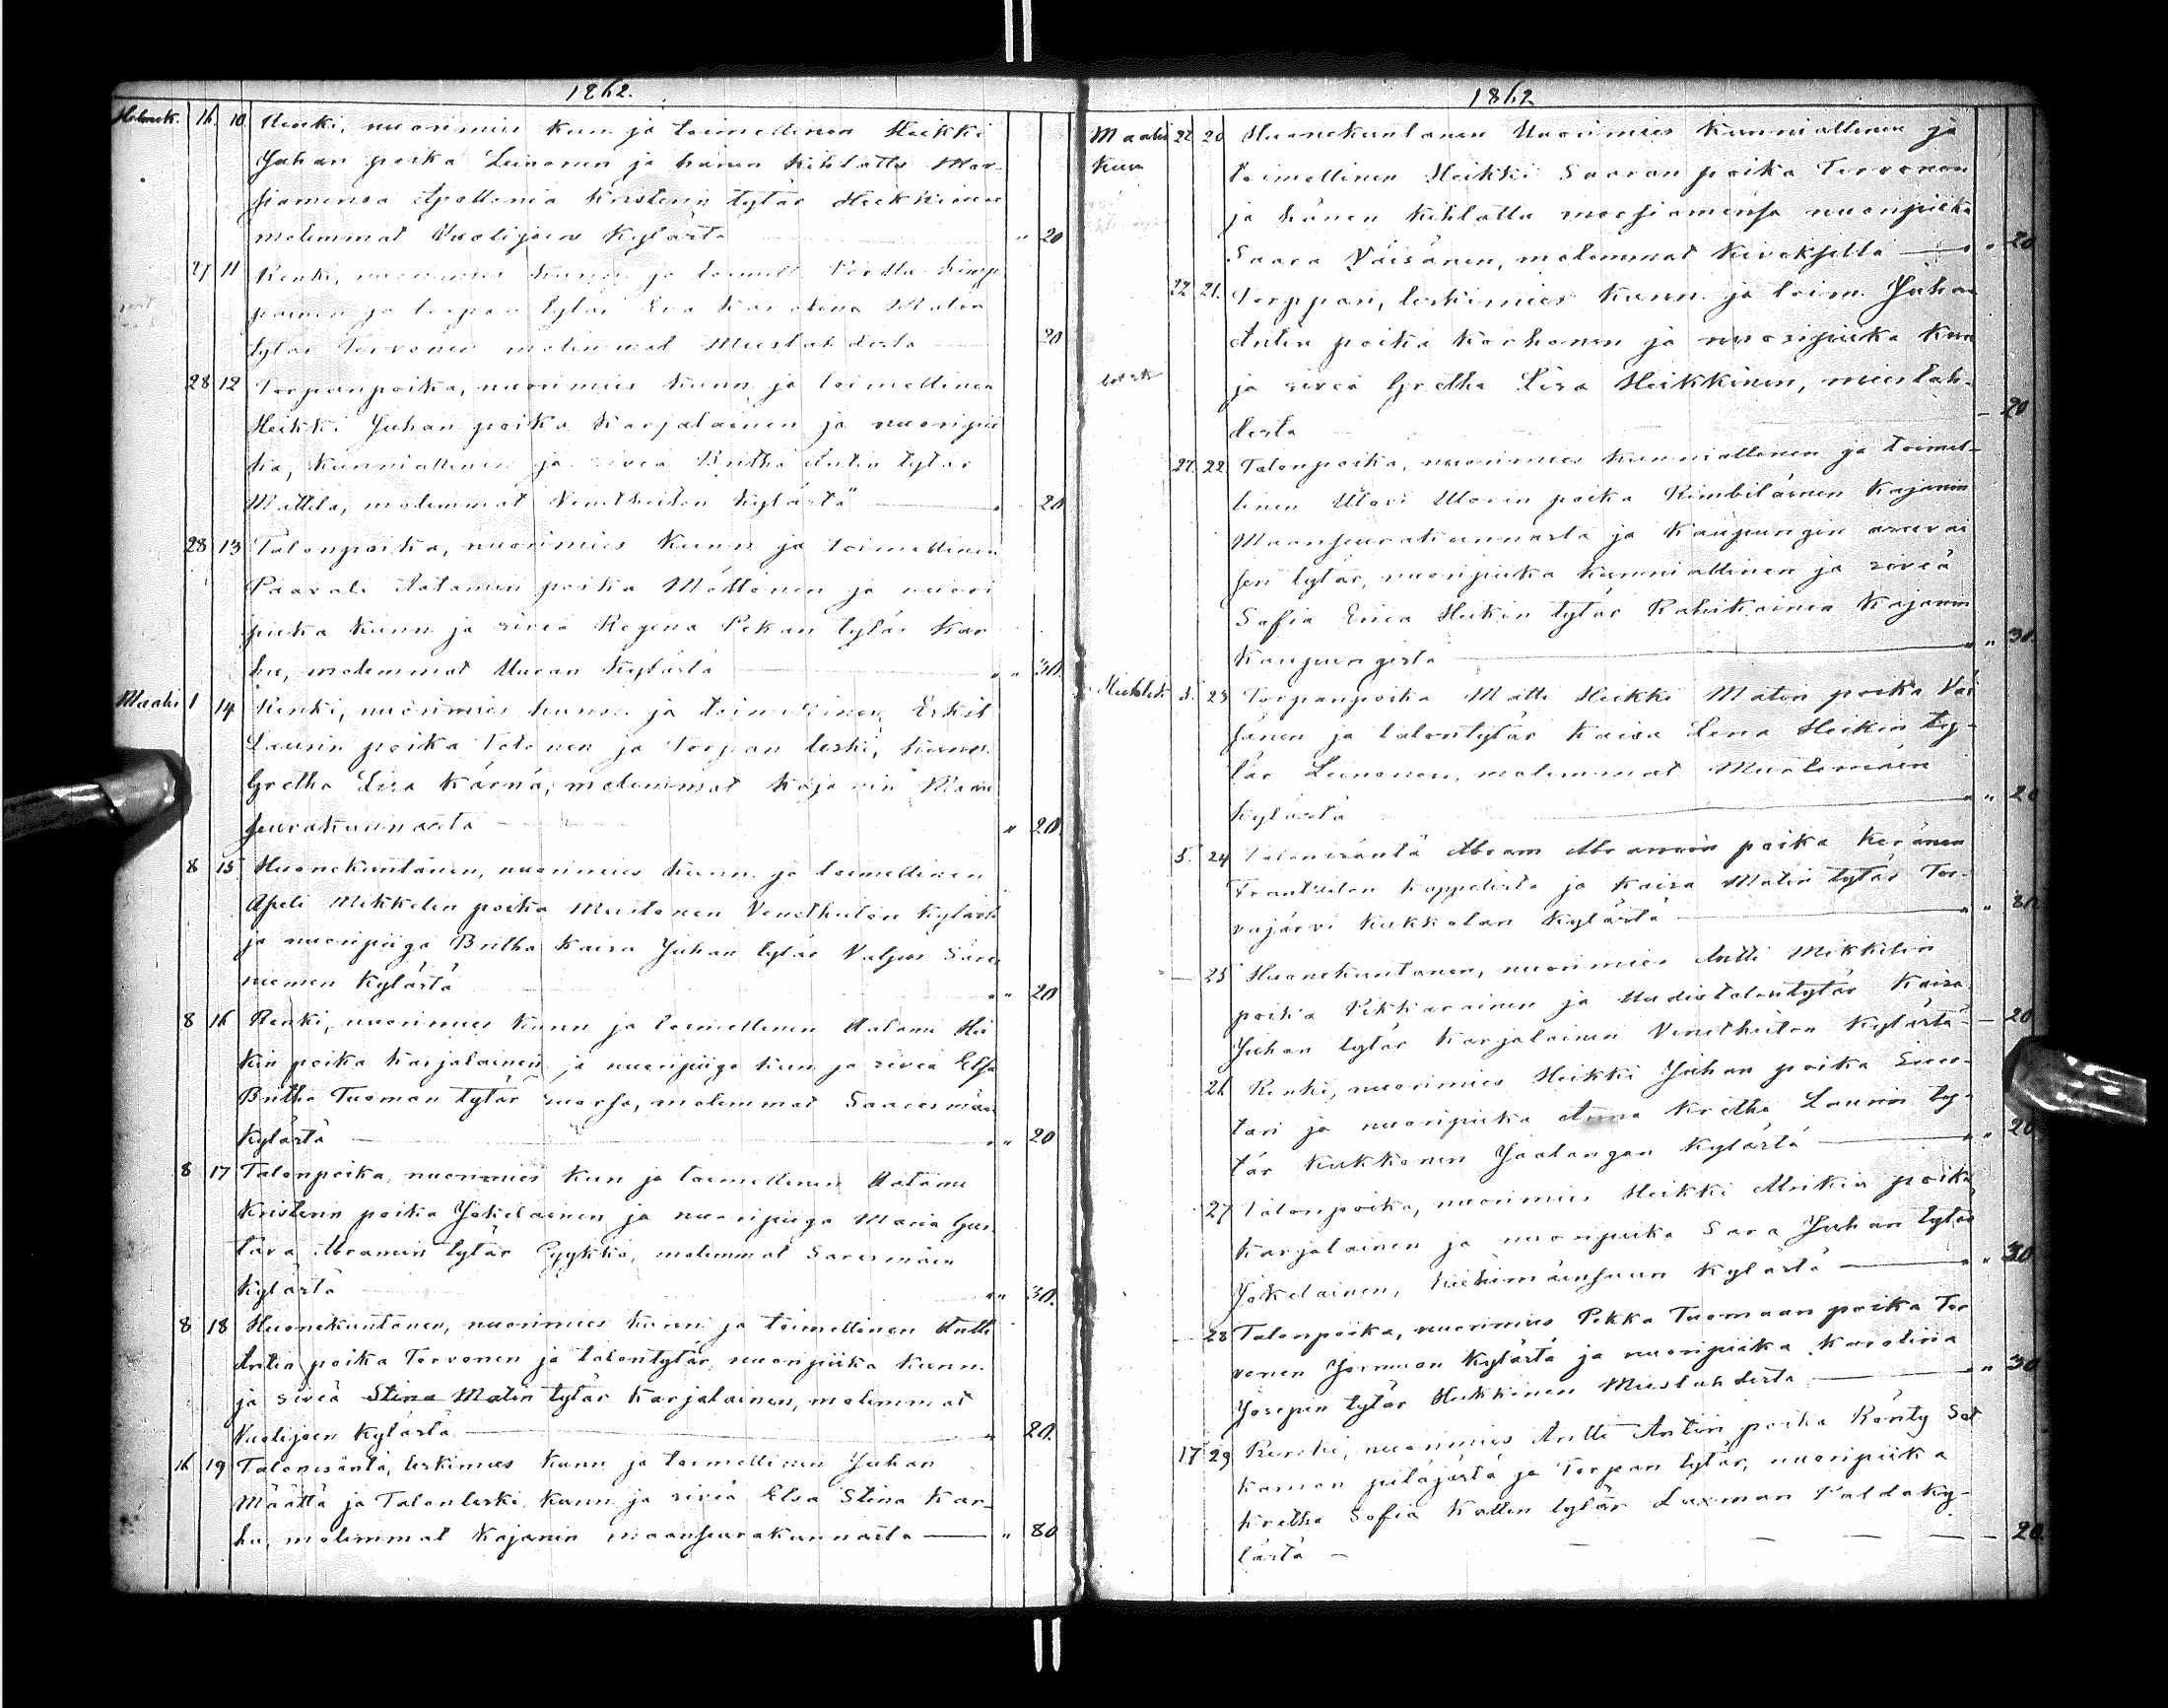 1862.
Helmik. 16. 10 Renki, nuorimies kun. ja toimellinen Heikki
Juhan poika Leinonen ja hänen kihlattu Mor-
siamensa Apollonia Kristerin tytär Heikkinen
molemmat Vuolijoen kylästä " 20
27 11 Renki, nuorimies kunn. ja toimell.
painen ja torpan tytär Eva Karolina Matin
tytär Tervonen molemmat Mieslahdesta 20
28 12 Torpanpoika, nuorimies kunn. ja toimellinen
Heikki Juhan poika Karjalainen ja nuoripii
ka, kunniallinen ja siveä Britha Antin tytär
Mattila, molemmat Venetheiton kylästä 20
28 13 Talonpoika, nuorimies kunn. ja toimellinen
Paavali Aatamin poika Möttönen ja nuori
piika kunn. ja siveä Regena Pekan tytär Kar
hu, molemmat Uuran kylästä " 30.
Maalis 1 14 Renki, nuorimies kunn. ja toimellinen Erkil
Laurin poika Tolonen ja Torpan leski, kunn.
Gretha Lisa Kärnä, molemmat Kajanin Maan
seurakunnasta " 20.
8 15 Huonekuntanen, nuorimies kunn. ja toimellinen
Apeli Mikkelin poika Mustonen Venetheiton kylästä
ja nuoripiiga Britha Kaisa Juhan tytär Valjus Säräs
niemen kylästä " 20
8 16 Renki, nuorimies kunn ja toimellinen Aatami Hei
kin poika Karjalainen ja nuoripiiga kun ja siveä Elsa
Britha Tuoman tytär Suorsa, molemmat Saaresmäen
kylästä " 20
8 17 Talonpoika, nuorimies kun ja toimellinen Aatami
Kristerin poika Jokelainen ja nuoripiiga Maria Gus
tava Abramin tytär Pyykkö, molemmat Saresmäen
kylästä " 30.
8 18 Huonekuntanen, nuorimies kunn. ja toimellinen Antti
Antin poika Tervonen ja talontytär, nuoripiika kunn.
ja siveä Stina Matin tytär Karjalainen, molemmat
Vuolijoen kylästä " 20.
16 19 Talonisäntä, leskimies kunn ja toimellinen Juhan
Määttä ja Talonleski kunn. ja siviä Elsa Stina Kar-
hu, molemmat Kajanin maanseurakunnasta " 80
1862
Maalis 22 20 Huonekuntanen Nuorimies kunniallinen ja
Kuu toimellinen Heikki Saaran poika Tervonen
ja hänen kihlattu morsiamensa nuoripiika
Saara Väisänen, molemmat Kiveksellä " 20
22 21. Torppari, leskimies kunn. ja toim. Juhan
Antin poika Korhonen ja nuoripiika kun
ja siveä Gretha Lisa Heikkinen, mieslah-
desta - 20
27. 22 Talonpoika, nuorimies kunniallinen ja toimel-
linen Ulavi Ulavin poika Kimbiläinen Kajanin
Maanseurakunnasta ja Kaupungin
sen tytär, nuoripiika kunniallinen ja siveä
Sofia Erica Heikin tytär Rahikainen Kajanin
Kaupungista " 30.
Huhtik 3. 23 Torpanpoika Matti Heikki Matin poika Väi
sänen ja talontytär Kaisa Lena Heikin ty-
tär Leinonen, molemmat Murtomäen
kylästä " 20
5. 24 Talonisäntä Abram Abramin poika Keränen
Frantsilan kappelista ja Kaisa Matin tytär Tor-
vajärvi Kukkolan kylästä "
- 25 Huonekuntanen, nuorimies Antti Mikkelin
poika Pikkarainen ja Uudistalontytär Kaisa
Juhan tytär Karjalainen Venetheiton kylästä - 20
26 Renki, nuorimies Heikki Juhan poika
tari ja nuoripiika Anna Kretha Laurin ty-
tär Kukkonen Jaalangan kylästä " 20
27 Talonpoika, nuorimies Heikki poika
Karjalainen ja nuoripiika Sara Juhan tytär
Jokelainen, kylästä " 30
- 28 Talonpoika, nuorimies Pekka Tuomaan poika Ter
vonen Jormuan kylästä ja nuoripiika Karolina
Josepin tytär Heikkinen Mieslahdesta " 30
17 29 Renki, nuorimies Antti Antin poika Ränty Sot
kamon pitäjästä ja Torpan tytär, nuoripiika
Kretha Sofia Kallen tytär Laxman Paldaky-
lästä - 20